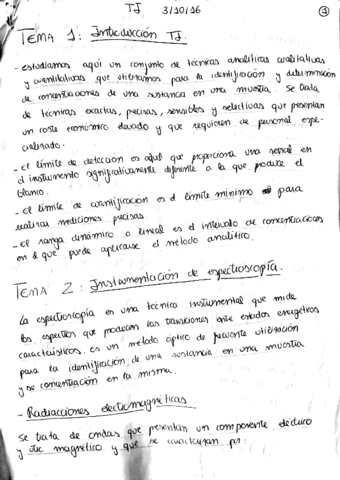 TI 3/10/16
TEMA 1: Introducción TI.
- estudiamos aquí un conjunto de técnicas analíticas cualitativas
y cuantitativas que utilizamos para la identificación y determinación
de concentraciones de una sustancia en una muestra. Se trata
de técnicas exactas, precisas, sensibles y selectivas que presentan
un coste económico elevado y que requieren de personal espe-
cializado.
- el límite de detección es aquel que proporciona una señal en
el instrumento significativamente diferente a la que produce el
blanco.
- el límite de cuantificación es el límite mínimo para
realizar mediciones precisas.
- el rango dinámico o lineal es el intervalo de concentraciones
en el que puede aplicarse el método analítico.
TEMA 2: Instrumentación de espectroscopía.
La espectroscopía es una técnica instrumental que mide
los espectros que producen las transiciones entre estados energéticos
característicos. es un método óptico de frecuente utilización
para la identificación de una sustancia en una muestra
y su concentración en la misma.
- Radiacciones electromagnéticas
Se trata de ondas que presentan un componente eléctrico
y otro magnético y que se caracterizan por: